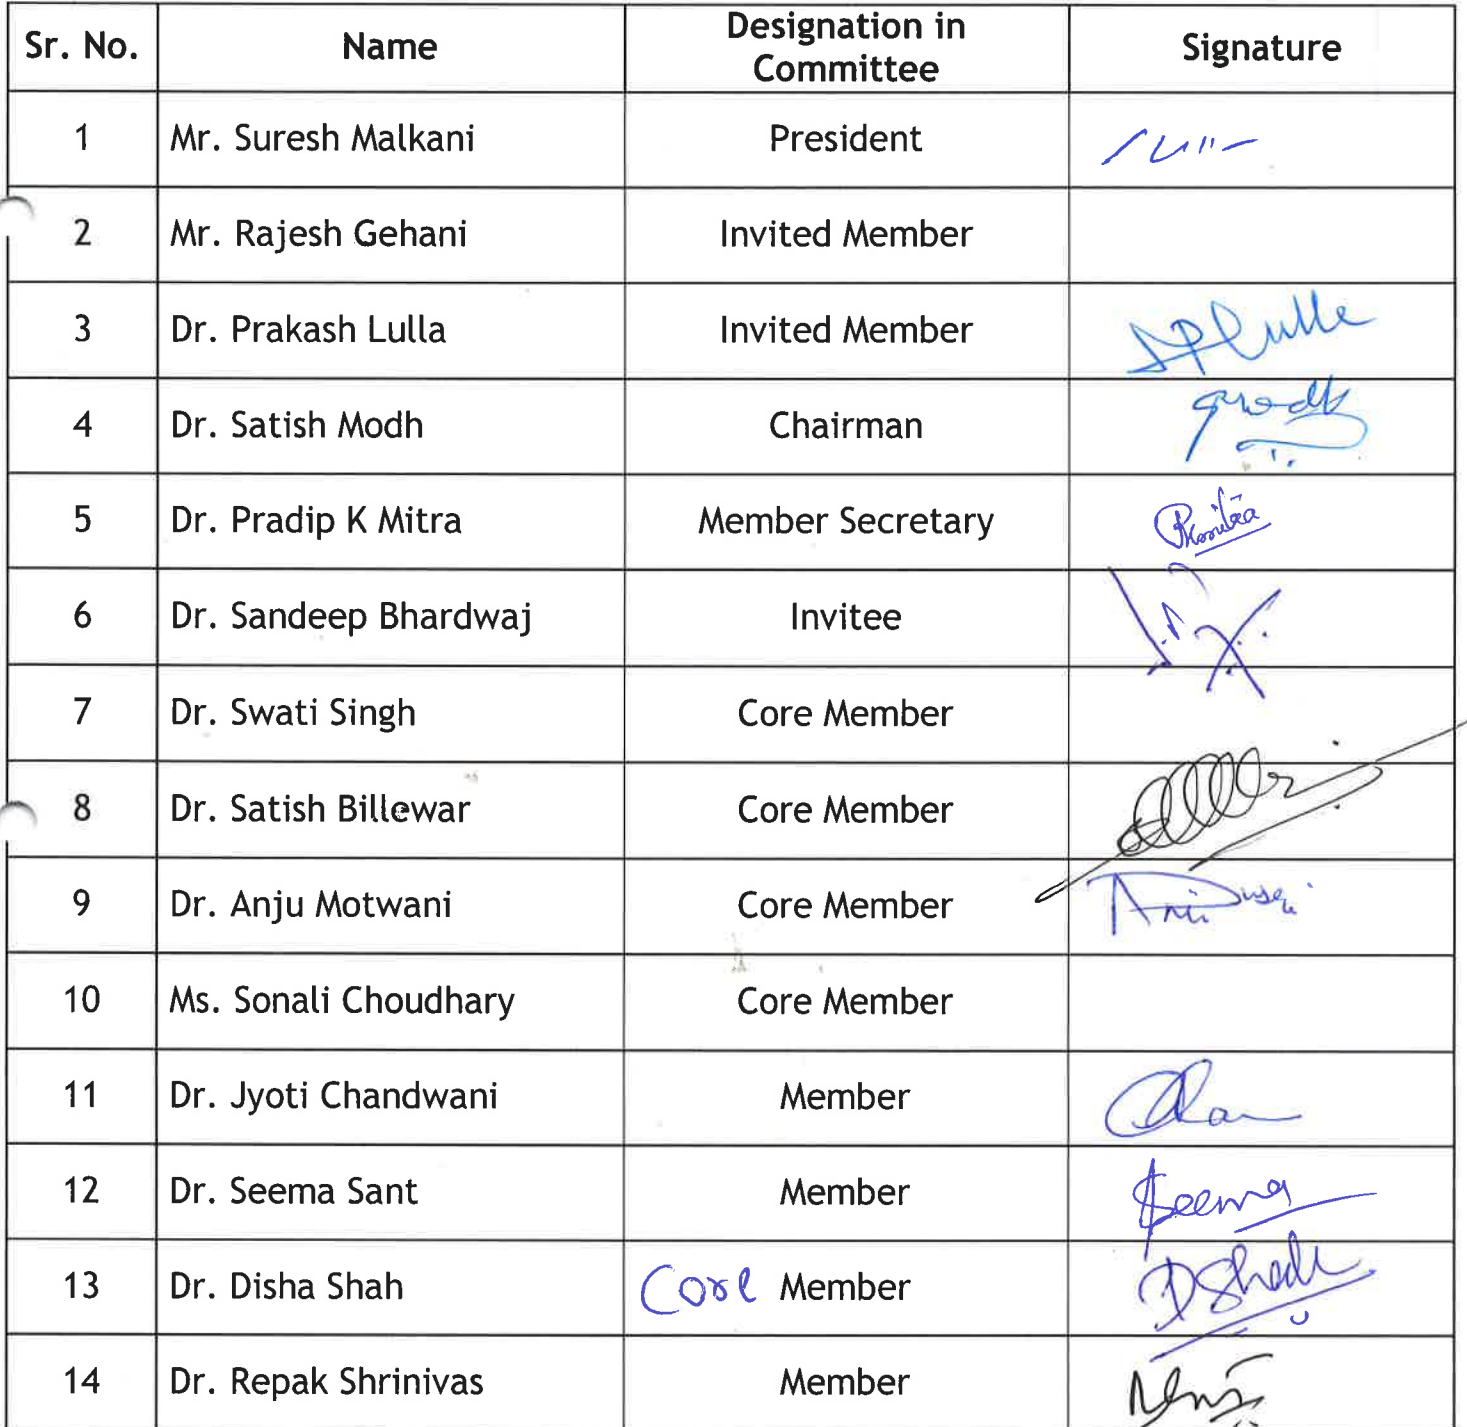 Sr. No. Name Designation in Committee Signature
1 Mr. Suresh Malkani President
2 Mr. Rajesh Gehani Invited Member
3 Dr. Prakash Lulla Invited Member
4 Dr. Satish Modh Chairman
5 Dr. Pradip K Mitra Member Secretary
6 Dr. Sandeep Bhardwaj Invitee
7 Dr. Swati Singh Core Member
8 Dr. Satish Billewar Core Member
9 Dr. Anju Motwani Core Member
10 Ms. Sonali Choudhary Core Member
11 Dr. Jyoti Chandwani Member
12 Dr. Seema Sant Member Seema
13 Dr. Disha Shah Core Member DShah
14 Dr. Repak Shrinivas Member